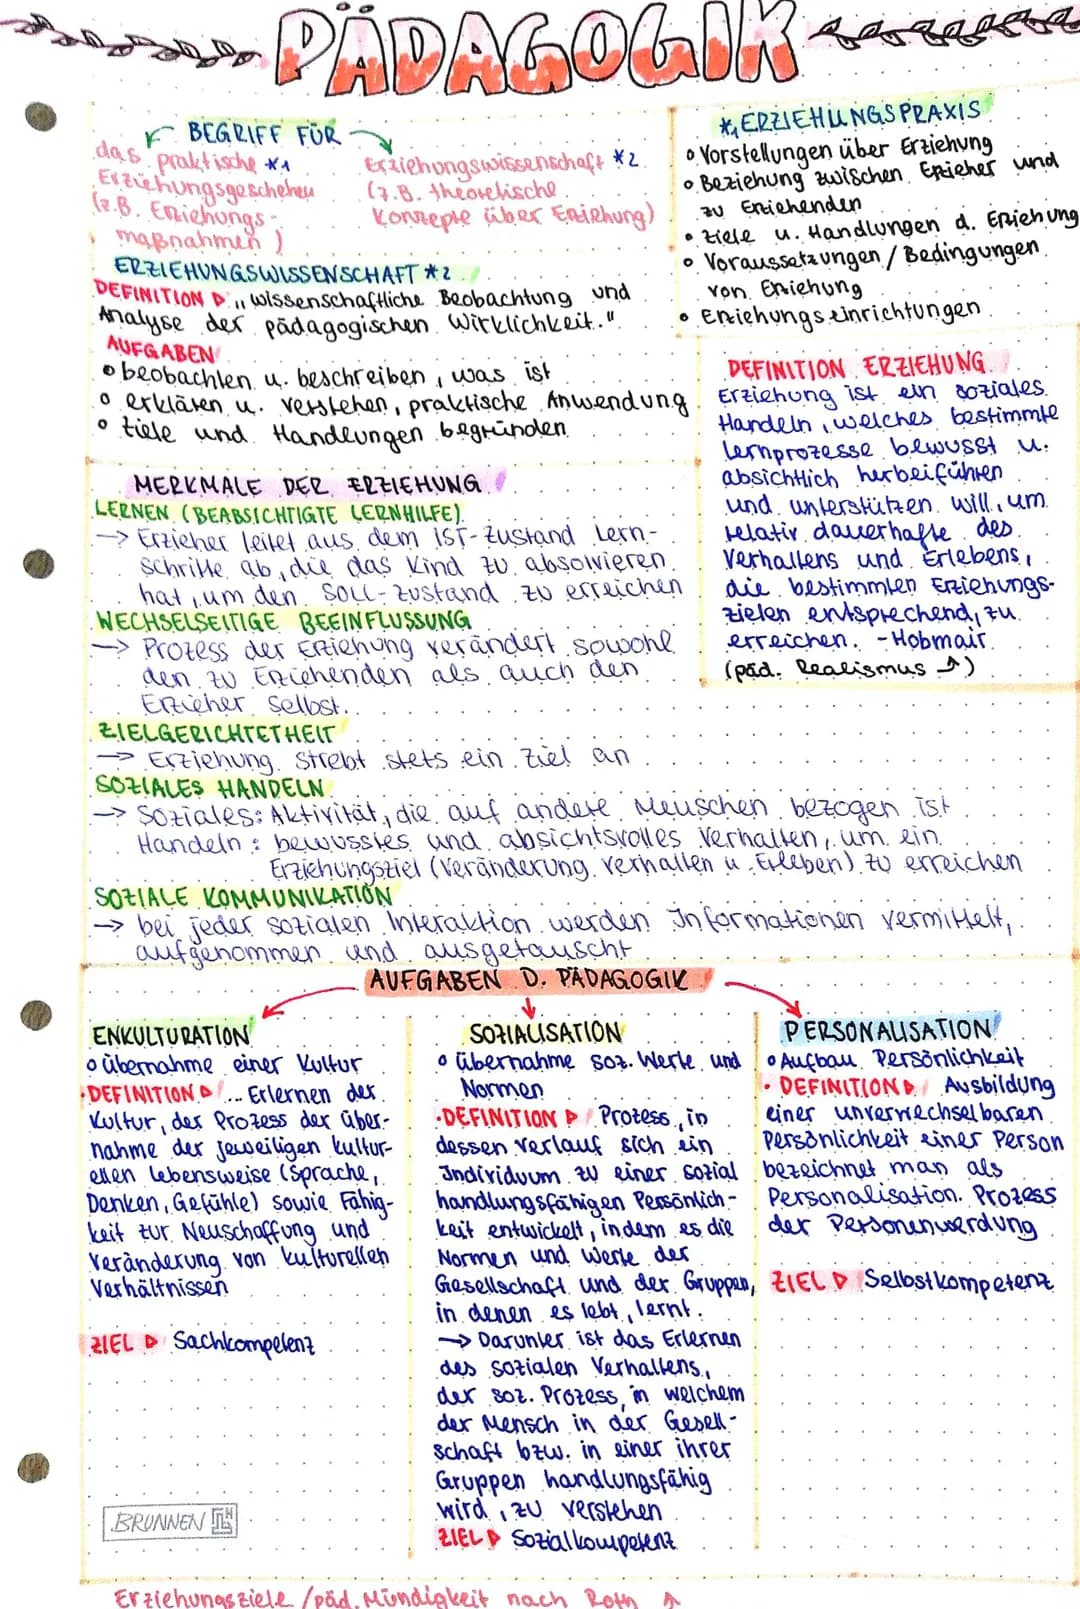 PÄDAGOGIK
BEGRIFF FÜR
das praktische *1
Erziehungsgeschehen
(z.B. Erziehungs-
maßnahmen)
Erziehungswissenschaft *2
(z.B. theoretische
Konzepte über Erziehung)
ERZIEHUNGSWISSENSCHAFT *2
DEFINITION ▷ „wissenschaftliche Beobachtung und
Analyse der pädagogischen Wirklichkeit."
AUFGABEN
o beobachten u. beschreiben, was ist
o erklären u. verstehen, praktische Anwendung
o Ziele und Handlungen begründen
*1 ERZIEHUNGSPRAXIS
o Vorstellungen über Erziehung
o Beziehung zwischen Erzieher und
zu Erziehenden
• Ziele u. Handlungen d. Erziehung
o Voraussetzungen / Bedingungen
von Erziehung
• Erziehungseinrichtungen
DEFINITION ERZIEHUNG
Erziehung ist ein soziales
Handeln, welches bestimmte
Lernprozesse bewusst u.
absichtlich herbeiführen
und unterstützen will, um
relativ dauerhafte des
Verhaltens und Erlebens,
die bestimmten Erziehungs-
zielen entsprechend, zu
erreichen. - Hobmair
(päd. Realismus ↗)
MERKMALE DER ERZIEHUNG
LERNEN (BEABSICHTIGTE LERNHILFE)
→ Erzieher leitet aus dem IST-Zustand Lern-
schritte ab, die das Kind zu absolvieren
hat, um den SOLL-Zustand zu erreichen
WECHSELSEITIGE BEEINFLUSSUNG
→ Prozess der Erziehung verändert sowohl
den zu Erziehenden als auch den
Erzieher selbst.
ZIELGERICHTETHEIT
→ Erziehung strebt stets ein Ziel an
SOZIALES HANDELN
→ Soziales: Aktivität, die auf andere Menschen bezogen ist
Handeln: bewusstes und absichtsvolles Verhalten, um ein
Erziehungsziel (Veränderung Verhalten u. Erleben) zu erreichen
SOZIALE KOMMUNIKATION
→ bei jeder sozialen Interaktion werden Informationen vermittelt,
aufgenommen und ausgetauscht
AUFGABEN D. PÄDAGOGIK
ENKULTURATION
o Übernahme einer Kultur
• DEFINITION ▷ ... Erlernen der
Kultur, der Prozess der Über-
nahme der jeweiligen kultur-
ellen Lebensweise (Sprache,
Denken, Gefühle) sowie Fähig-
keit zur Neuschaffung und
Veränderung von kulturellen
Verhältnissen
ZIEL ▷ Sachkompetenz
SOZIALISATION
o Übernahme soz. Werte und
Normen
• DEFINITION ▷ Prozess, in
dessen Verlauf sich ein
Individuum zu einer sozial
handlungsfähigen Persönlich-
keit entwickelt, indem es die
Normen und Werte der
Gesellschaft und der Gruppen,
in denen es lebt, lernt.
→ Darunter ist das Erlernen
des sozialen Verhaltens,
der soz. Prozess, in welchem
der Mensch in der Gesell-
schaft bzw. in einer ihrer
Gruppen handlungsfähig
wird, zu verstehen
ZIEL ▷ Sozialkompetenz
PERSONALISATION
o Aufbau Persönlichkeit
• DEFINITION ▷ Ausbildung
einer unverwechselbaren
Persönlichkeit einer Person
bezeichnet man als
Personalisation. Prozess
der Personenwerdung
ZIEL ▷ Selbstkompetenz
BRUNNEN
Erziehungsziele / päd. Mündigkeit nach Roth ↗